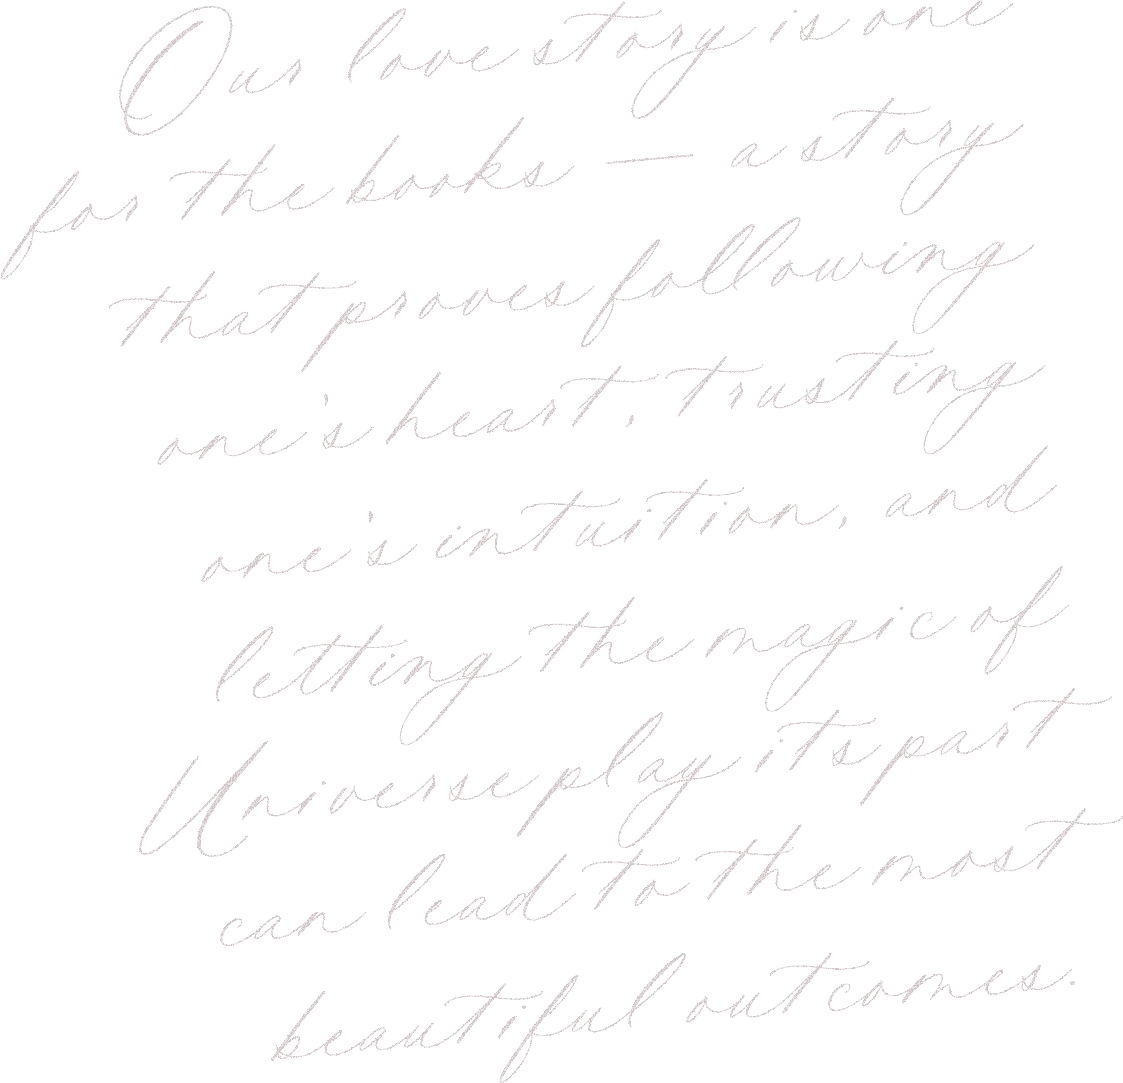 Our love story is one
for the books — a story
that proves following
one's heart, trusting
one's intuition, and
letting the magic of
Universe play its part
can lead to the most
beautiful outcomes.